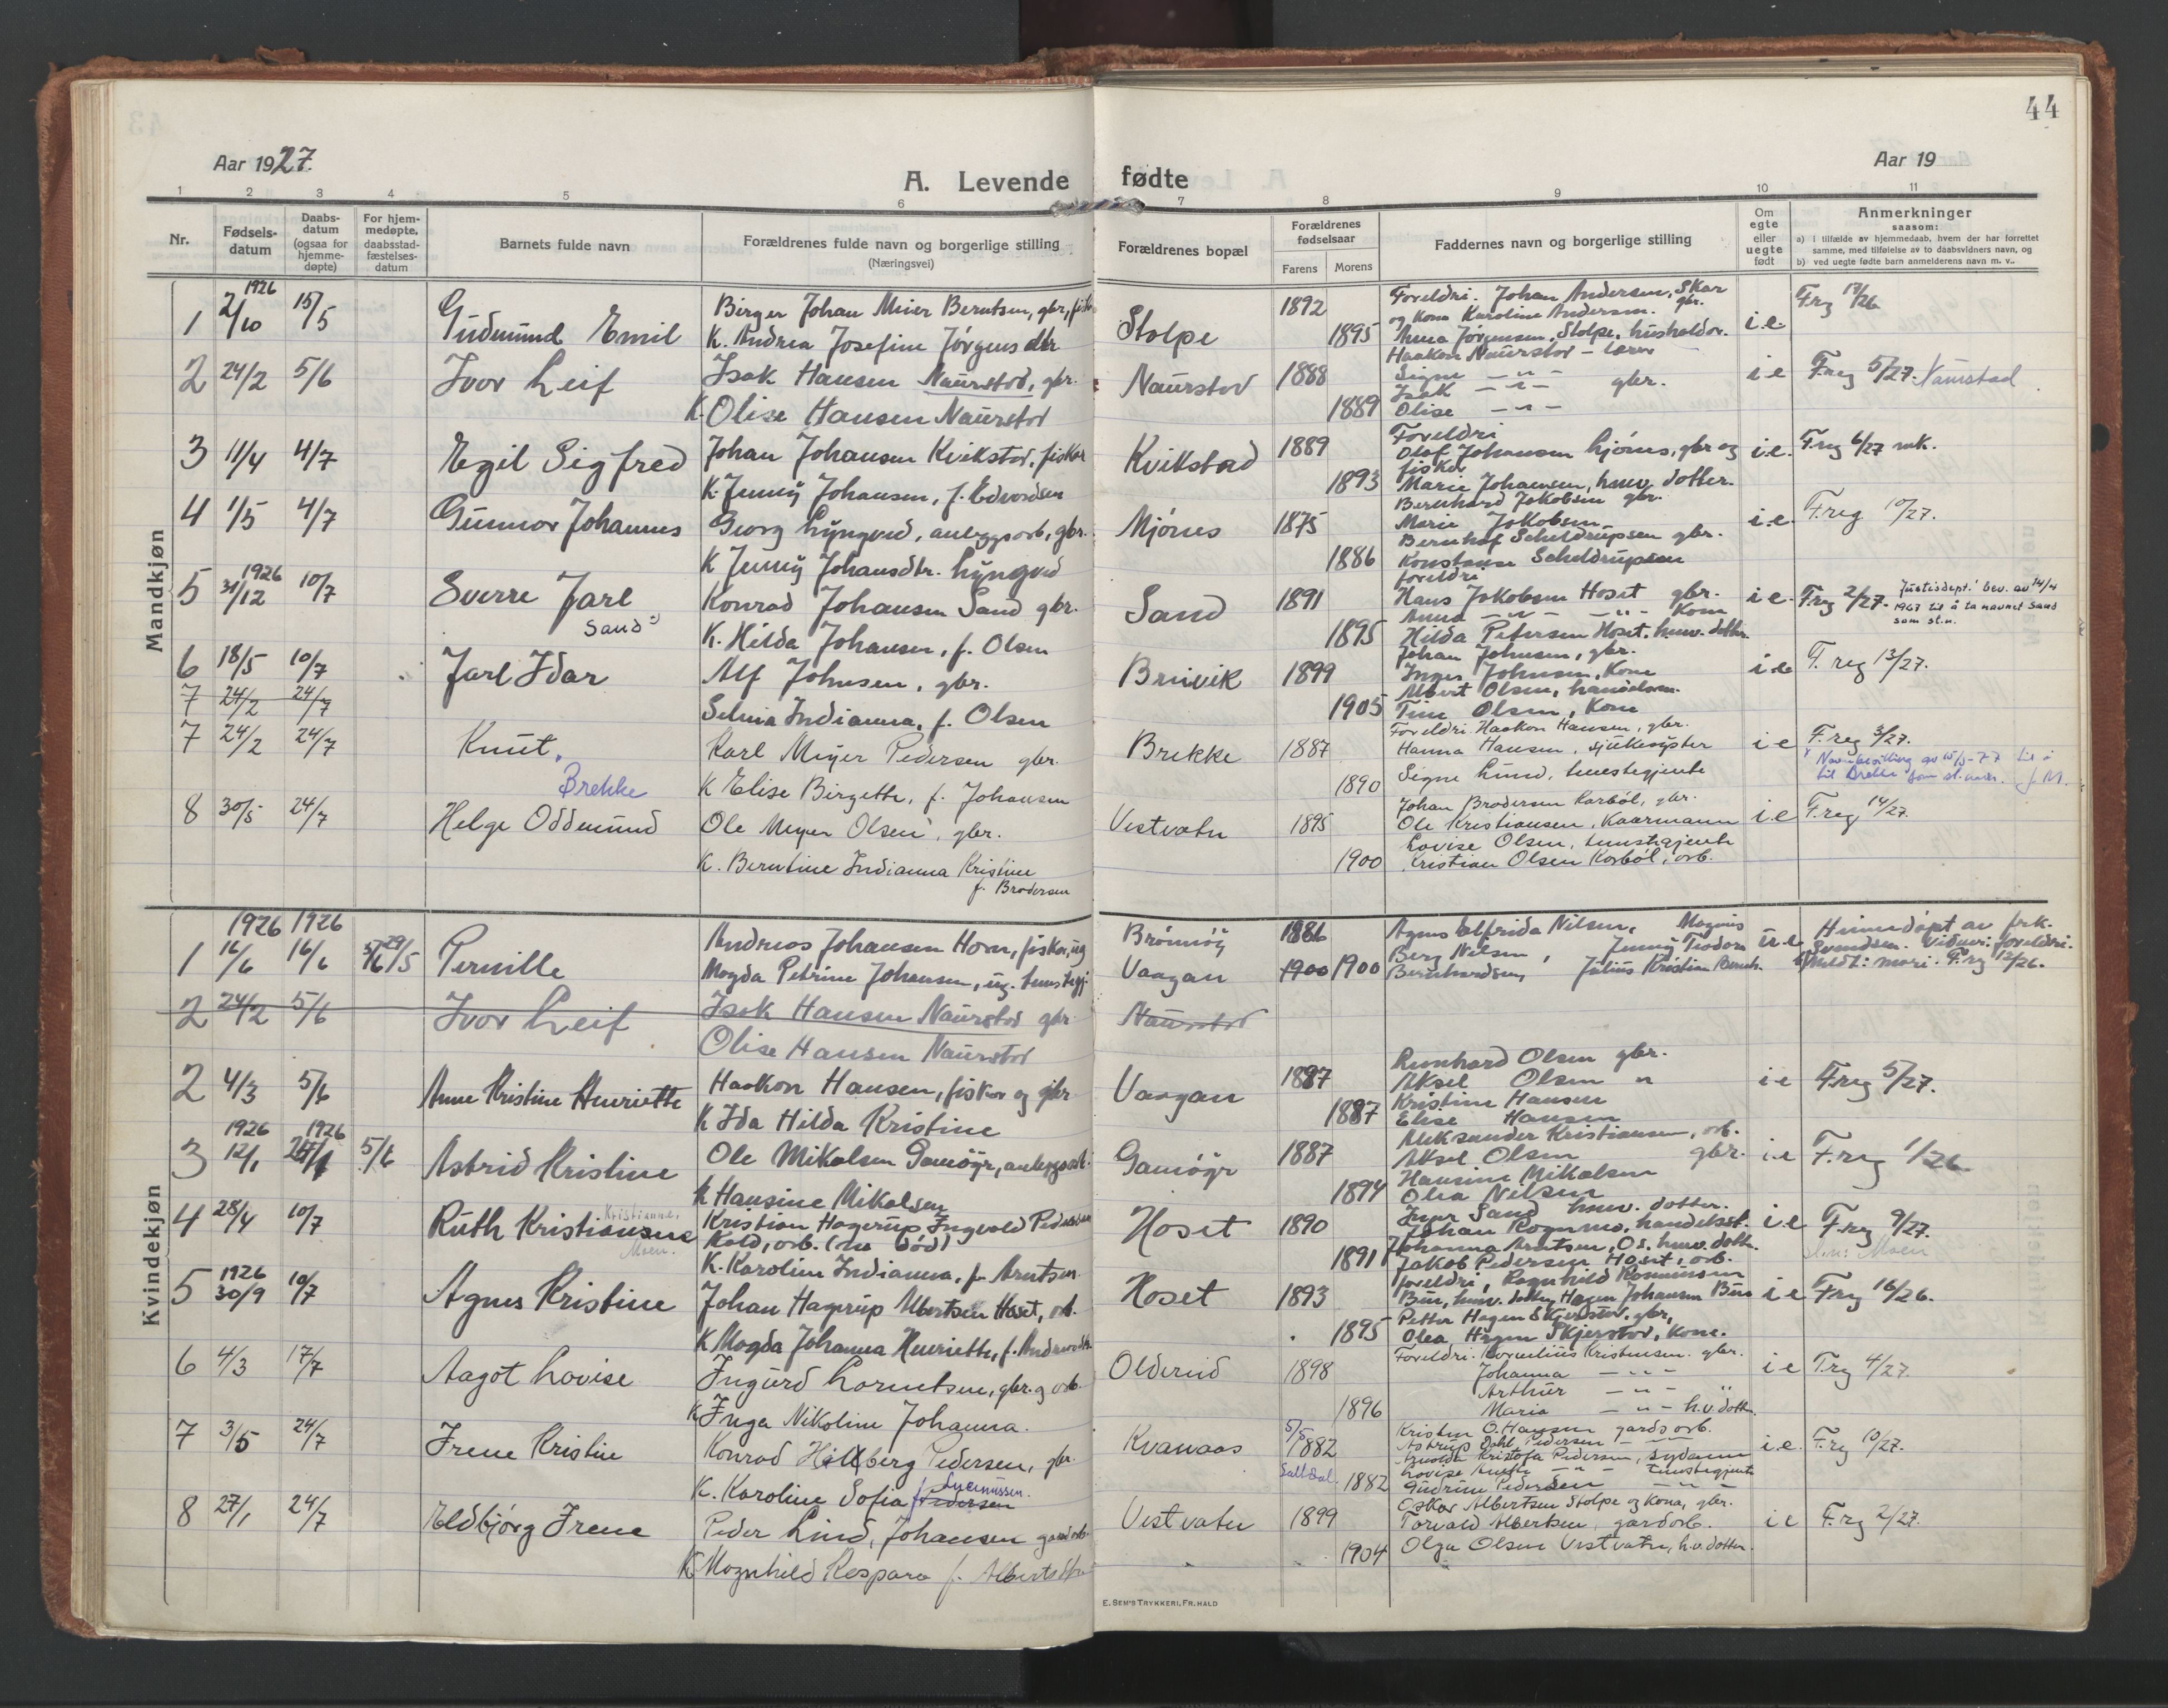 44
Aar 1927.
Aar 19
A. Levende fødte
1 2 3 4 5 6 7 8 9 10 11
Nr.
Fødsels-datum
Daabs-datum (ogsaa for hjemme-døpte)
For hjem-medøpte, daabsstad-fæstelses-datum
Barnets fulde navn
Forældrenes fulde navn og borgerlige stilling
(Næringsvei)
Forældrenes bopæl
Forældrenes fødselsaar
Farens Morens
Faddernes navn og borgerlige stilling
Om egte eller uegte født
Anmerkninger
saasom:
a) i tilfælde av hjemmedaab, hvem der har forrettet samme, med tilføielse av to daabsvidners navn, og
b) ved uegte fødte barn anmelderens navn m. v..
Mandkjøn
1 1926 2/10 15/5 Gudmund Emil
Birger Johan Meier Berntsen, gbr, fisker
K. Andrea Josefine Jørgensdtr
Stolpe 1892 1895
Foreldri. Johan Andersen, Skar gbr.
og Kona Karoline Andersen.
Anna Jørgensen, Stolpe, husholdn.
i.e Freg 17/26
2 24/2 5/6 Ivor Leif
Isak Hansen Naurstod, gbr.
K. Olise Hansen Naurstod
Naurstod 1888 1889
Haakon Naurstod - lærer
Signe — " —
Isak — " — gbr.
Olise — " —
i e Freg 5/27. Naurstad
3 11/4 4/7 Egil Sigfred
Johan Johansen Kvikstad, fisker
K. Jenny Johansen, f. Edvardsen
Kvikstad 1889 1893
Foreldri
Olaf Johansen Mjønes, gbr og fisker
Marie Johansen, heimv. dotter.
i.e. Freg 6/27 mk.
4 1/5 4/7 Gunnar Johannes
Georg Lyngved, anleggsarb, gbr.
K Jenny Johansdtr. Lyngved
Mjønes 1875 1886
Bernhard Jakobsen gbr.
Marie Jakobsen
Bernhof Scheldrupsen gbr.
Konstanse Scheldrupsen
i.e. Freg 10/27.
5 1926 31/12 10/7 Sverre Jarl
Sand
Konrad Johansen Sand gbr.
K. Hilda Johansen, f. Olsen
Sand 1891 1895
foreldri
Hans Jakobsen Hoset gbr.
Anna — " — — " — Kone
Hilda Petersen Hoset, heimv. dotter
i e. Freg 2/27. Justisdept! bev. av 14/4
1967 til å ta navnet Sand
som sl.n.
6 18/5 10/7 Jarl Idar
Alf Johnsen, gbr.
Selma Indianna, f. Olsen
Bruvik 1899 1905
Johan Johnsen, gbr.
Inger Johnsen, Kone
Albert Olsen, handelsm.
Tine Olsen, Kone
i.e F. reg 13/27.
7 24/2 24/7
7 24/2 24/7 Knut.
Brekke
Karl Meyer Pedersen gbr.
K Elise Birgette, f. Johansen
Brekke 1887 1890
Foreldri Haakon Hansen, gbr.
Hanna Hansen, sjukesyster
Signe Lund, tenestegjente
i e F. reg 3/27.
8 30/5 24/7 Helge Oddmund
Ole Meyer Olsen, gbr.
K. Berntine Indianna Kristine
f. Brodersen
Vestvatn 1895 1900
Johan Brodersen Karbøl, gbr.
Ole Kristiansen, Kaarmann
Lovise Olsen, tenestegjente
Kristian Olsen Karbøl, arb.
i e F.reg 14/27.
Kvindekjøn
1 1926 16/6 1926 16/6 29/5 Pernille
Andreas Johansen Horn, fisker, ug
Magda Petrine Johansen, ug. tenstegj.
Brønnøy
Vaagan 1886 1900 1900
Agnes Elfrida Nilsen, Magnus
Berg Nilsen, Jenny Teodora
Bernhardsen, Julius Kristian Bernh.
u.e Heimedøpt av frk.
Svendsen. Vidner: foreldri.
Meld: mori. F.reg 12/26.
2 24/2 5/6 Ivor Leif
Isak Hansen Naurstod gbr
Olise Hansen Naurstod
Naurstod
2 4/3 5/6 Anne Kristine Henriette
Haakon Hansen, fisker og gbr
K Ida Hilda Kristine
Vaagan 1887 1887
Reinhard Olsen gbr.
Aksel Olsen "
Kristine Hansen
Elise Hansen
i e Freg 5/27.
3 1926 12/1 1926 5/6 Astrid Kristine
Ole Mikalsen Gamøyr, anleggsarb.
K Hansine Mikalsen
Gamøyr 1887 1894
Aleksander Kristiansen, arb.
Aksel Olsen gbr.
Hansine Mikalsen
Olea Nilsen
i e F.reg 1/26
4 28/4 10/7 Ruth Kristiansene
Kristianne.
Moen.
Kristian Hagerup Ingvald Pedersen
Kald, arb. (no død)
K. Karoline Indianna, f. Arntsen.
Hoset 1890 1891
Inar Sand heimv. dotter.
Johan Rognmo, handelsst.
Johanna Arntsen, Os, heimv. dott.
Jakob Pedersen Hoset, arb.
i e F.reg 9/27.
sl.n: Moen
5 1926 30/9 10/7 Agnes Kristine
Johan Hagerup Albertsen Hoset, arb.
K Magda Johanna Henriette, f. Andreasdtr.
Hoset 1893 1895
foreldri, Ragnhild Rasmussen
Bue, heimv. dotter, Hagen Johansen Bue
Petter Hagen Skjerstad, gbr,
Olea Hagen Skjerstad, Kone.
i e Freg 16/26.
6 4/3 17/7 Aagot Lovise
Ingurd Lorentsen, gbr. og arb.
K Inga Nikoline Johanna.
Oldereid 1898 1896
Foreldri. Kornelius Kristensen. gbr.
Johanna — " —
Arthur — " — "
Maria — " — h.v. dotter
i e F.reg 4/27.
7 3/5 24/7 Irene Kristine
Konrad Hillberg Pedersen, gbr.
K. Karoline Sofia f. Pedersen
Lucinussen.
Kvanaas 5/5 1882
Saltdal. 1882
Kristen O. Hansen gardsarb.
Astrup Dahl Pedersen — " —
Arnolda Kristofa Pedersen, sydame
Gudrun Pedersen — " —
i.e. F.reg 10/27.
8 27/1 24/7 Eldbjørg Irene
Peder Lind, Johansen gardarb.
K. Magnhild Kaspara f. Albertsdtr
Vestvatn 1899 1904
Oskar Albertsen Stolpe og Kona, gbr.
Torvald Albertsen, gardarb.
Olga Olsen Vestvatn, h.v. dotter.
i e F.reg 2/27.
E. SEM'S TRYKKERI, FR. HALD